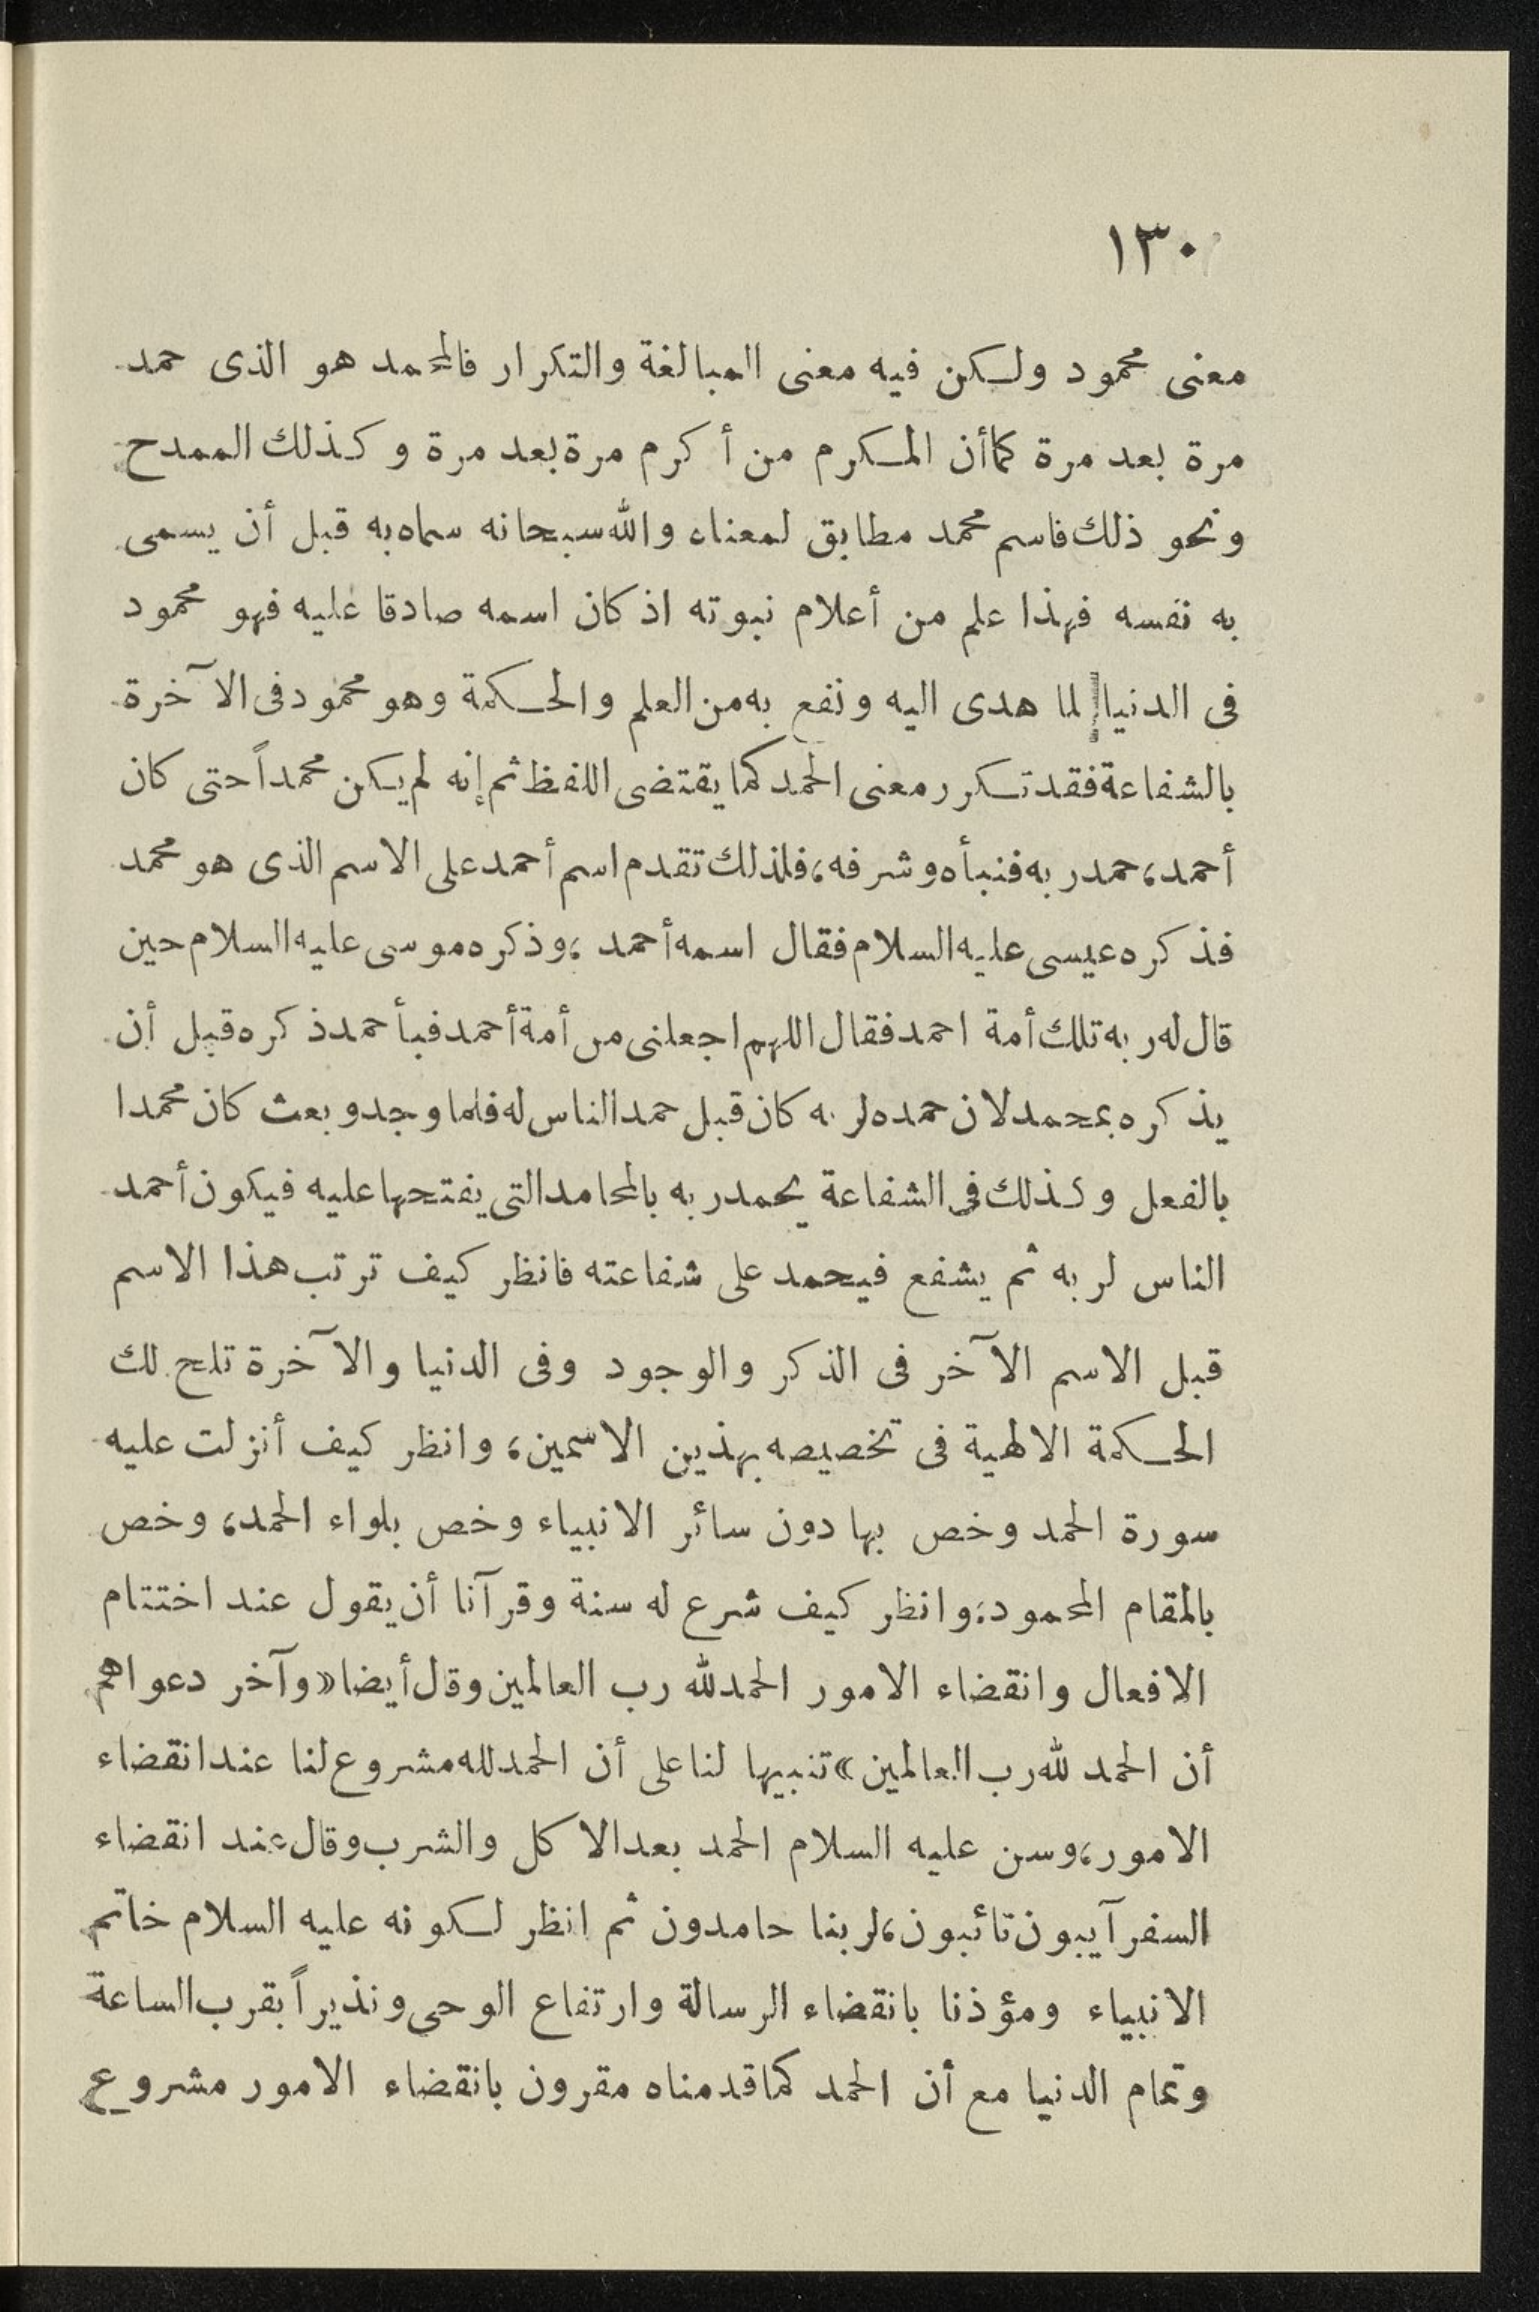 ١٣٠
معنى محمود ولكن فيه معنى المبالغة والتكرار فالمحمد هو الذى حمد
مرة بعد مرة كما أن المكرم من أكرم مرة بعد مرة وكذلك الممدح
ونحو ذلك فاسم محمد مطابق لمعناه والله سبحانه سماه به قبل أن يسمى
به نفسه فهذا علم من أعلام نبوته اذ كان اسمه صادقا عليه فهو محمود
فى الدنيا لما هدى اليه ونفع به من العلم والحكمة وهو محمود فى الآخرة
بالشفاعة فقد تكرر معنى الحمد كما يقتضى اللفظ ثم إنه لم يكن محمداً حتى كان
أحمد، حمد ربه فنبأه وشرفه، فلذلك تقدم اسم أحمد على الاسم الذى هو محمد
فذكره عيسى عليه السلام فقال اسمه أحمد ، وذكره موسى عليه السلام حين
قال له ربه تلك أمة احمد فقال اللهم اجعلنى من أمة أحمد فبأحمد ذكره قبل أن
يذكره بمحمد لان حمده لربه كان قبل حمد الناس له فلما وجد وبعث كان محمدا
بالفعل وكذلك فى الشفاعة يحمد ربه بالمحامد التى يفتحها عليه فيكون أحمد
الناس لربه ثم يشفع فيحمد على شفاعته فانظر كيف ترتب هذا الاسم
قبل الاسم الآخر فى الذكر والوجود وفى الدنيا والآخرة تلح لك
الحكمة الالهية فى تخصيصه بهذين الاسمين، وانظر كيف أنزلت عليه
سورة الحمد وخص بها دون سائر الانبياء وخص بلواء الحمد، وخص
بالمقام المحمود، وانظر كيف شرع له سنة وقرآنا أن يقول عند اختتام
الافعال وانقضاء الامور الحمد لله رب العالمين وقال أيضا «وآخر دعواهم
أن الحمد لله رب العالمين» تنبيها لنا على أن الحمد لله مشروع لنا عند انقضاء
الامور، وسن عليه السلام الحمد بعد الاكل والشرب وقال عند انقضاء
السفر آيبون تائبون، لربنا حامدون ثم انظر لكونه عليه السلام خاتم
الانبياء ومؤذنا بانقضاء الرسالة وارتفاع الوحى ونذيراً بقرب الساعة
وتمام الدنيا مع أن الحمد كما قدمناه مقرون بانقضاء الامور مشروع